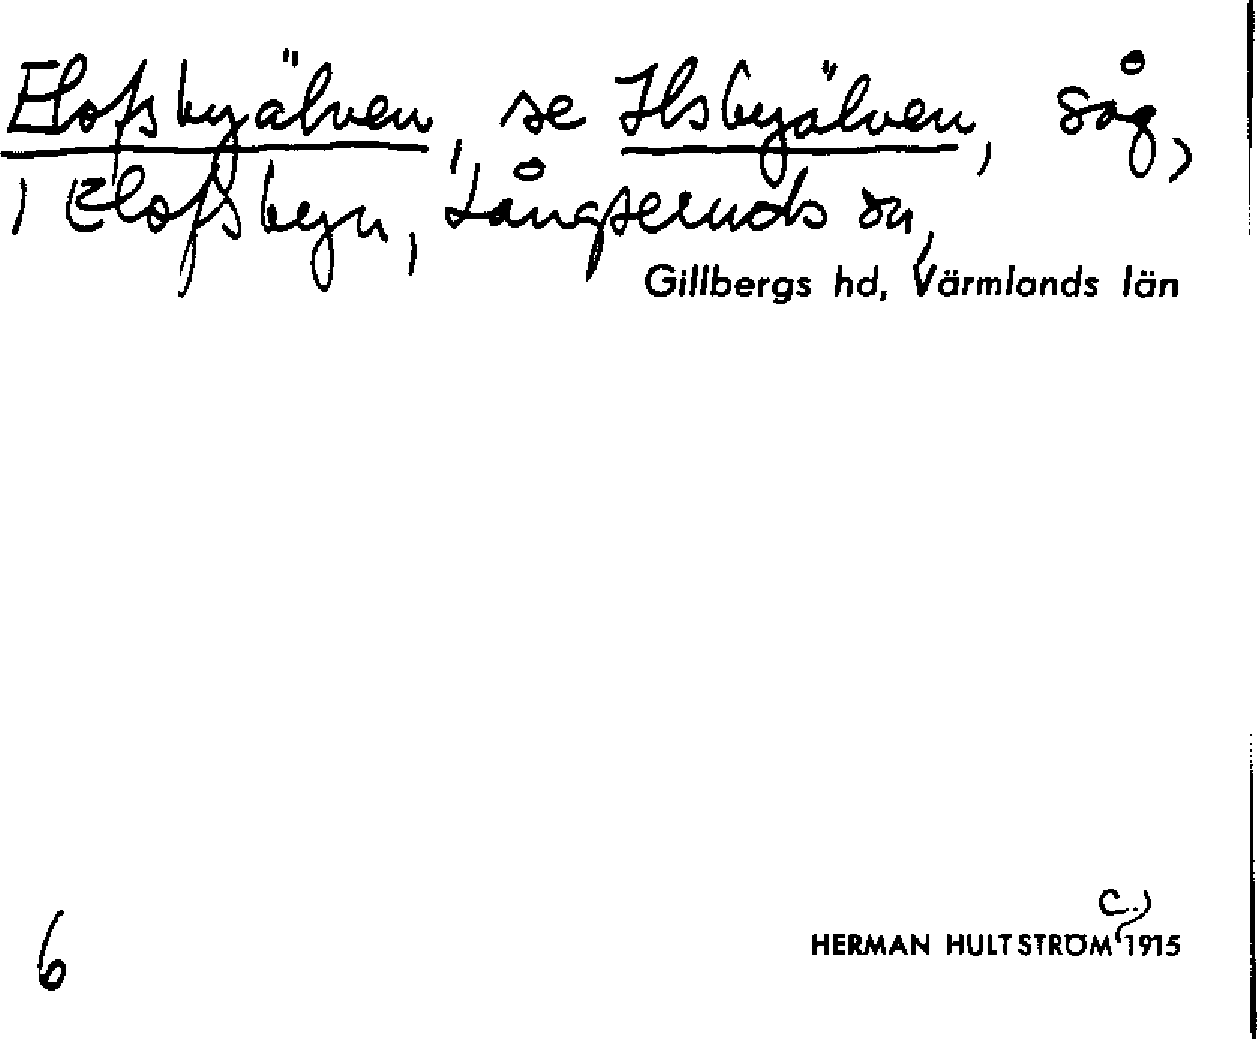 Elofsbyälven, se Ilsbyälven, såg,
i Elofsbyn, Långseruds sn,
Gillbergs hd, Värmlands län
(..)
HERMAN HULTSTRÖM 1915
6